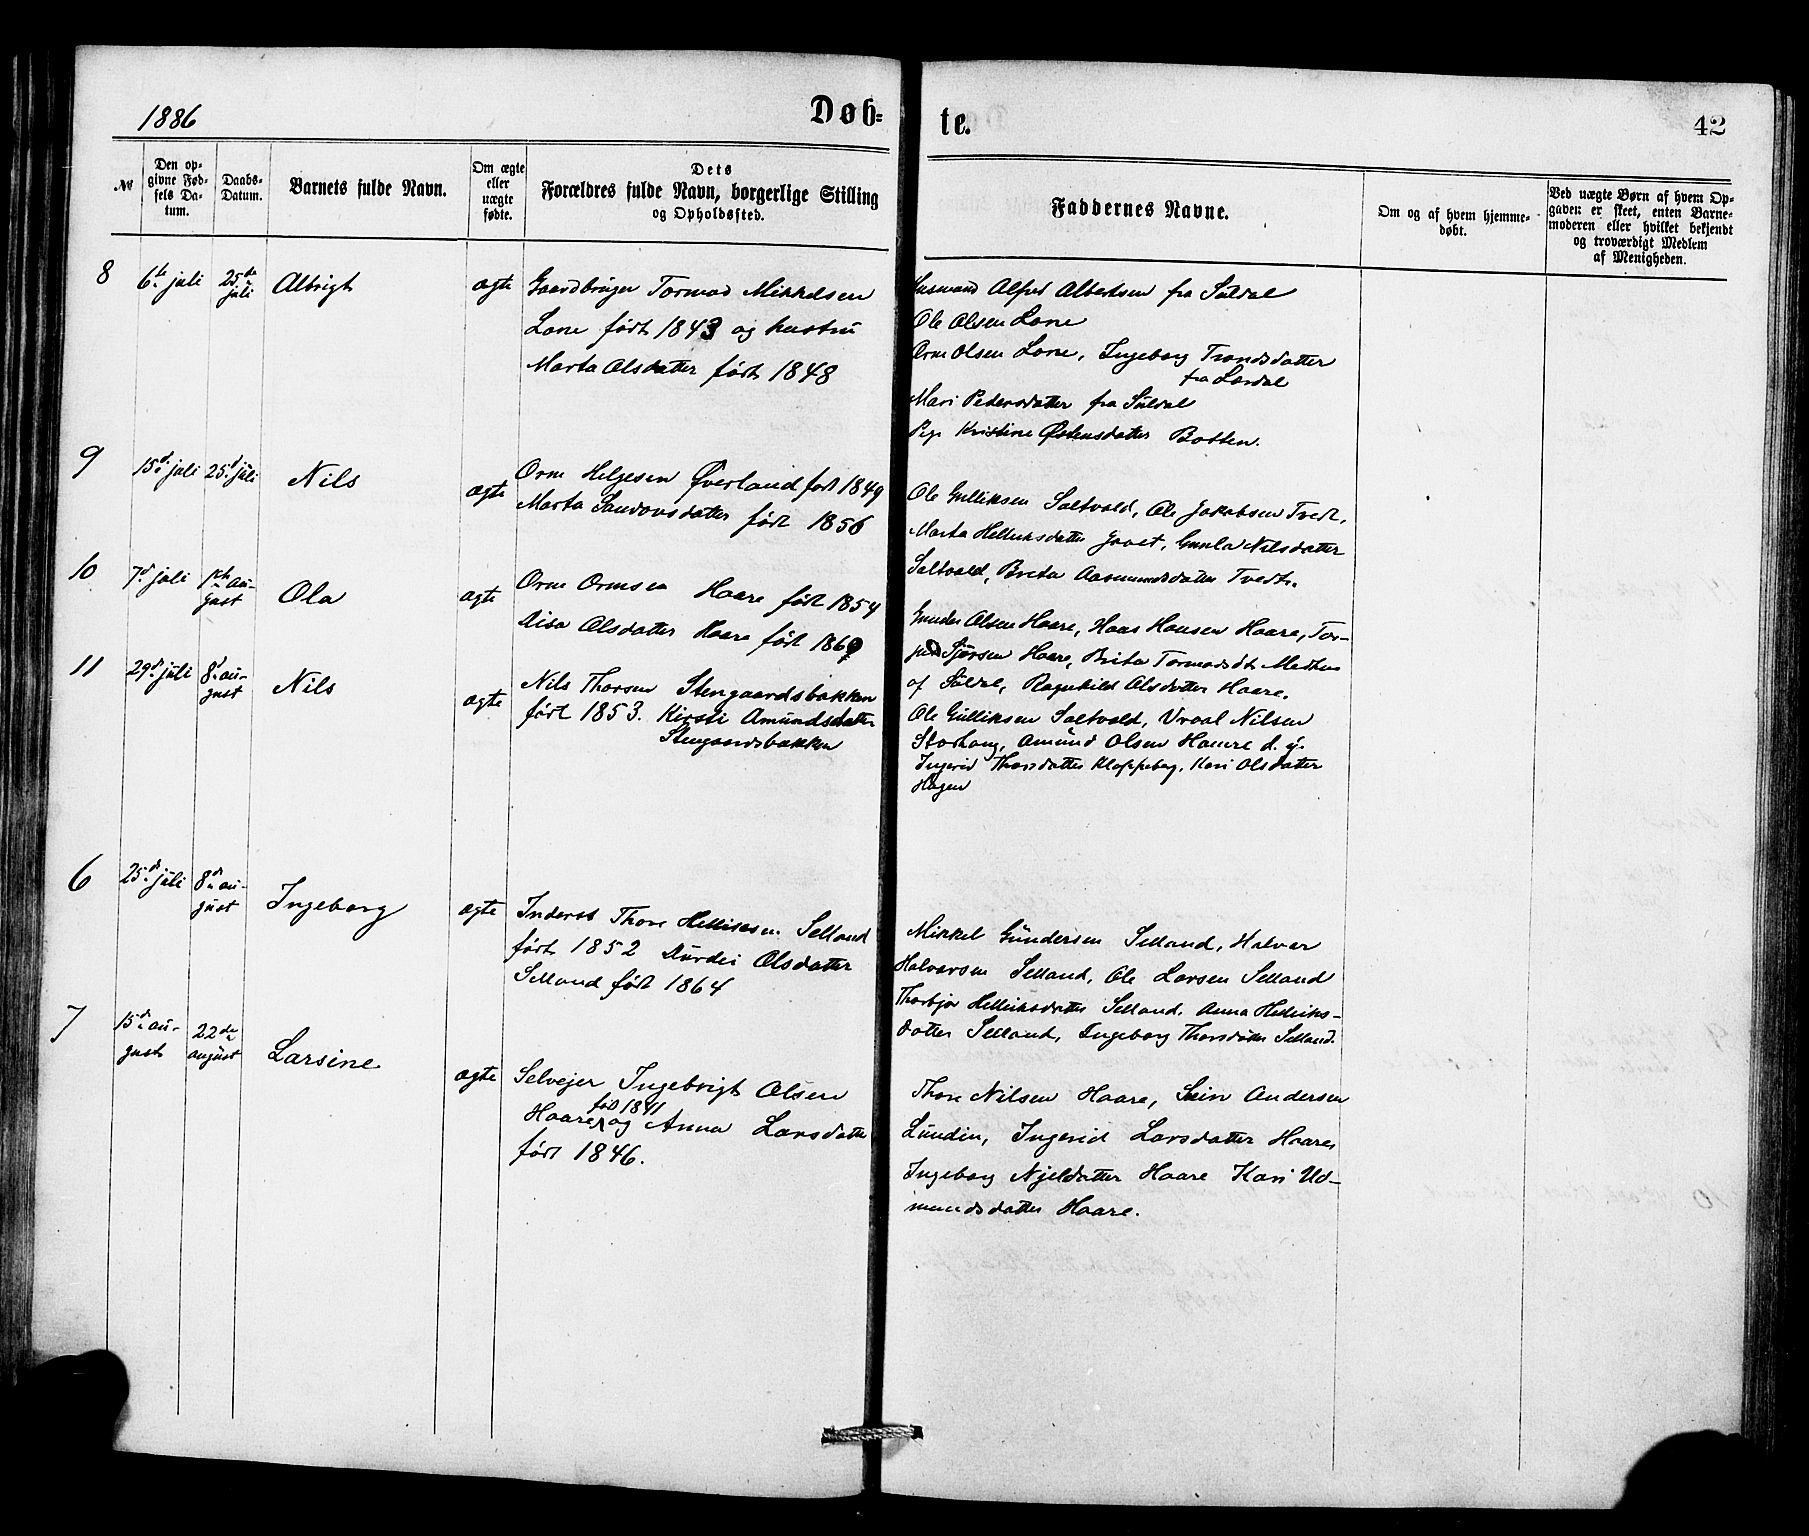 1886
Døb=
te.
42
№
Den op-
givne Fød-
sels Da-
tum.
Daabs-
Datum.
Barnets fulde Navn.
Om ægte
eller
uægte
fødte.
Dets
Forældres fulde Navn, borgerlige Stilling
og Opholdssted.
Faddernes Navne.
Om og af hvem hjemme-
døbt.
Ved uægte Børn af hvem Op-
gaven er skeet, enten Barne-
moderen eller hvilket bekjendt
og troværdigt Medlem
af Menigheden.
8
6te juli
25de
juli
Albrigt
ægte
Gaardbruger Tormod Mikkelsen
Lone født 1843 og hustru
Marta Olsdatter født 1848
Husmand Alfred Albertsen fra Suldal
Ole Olsen Lone
Orm Olsen Lone, Ingeborg Trondsdatter
Mari Pedersdatter fra Suldal
Pige Kristine Østensdatter Botten.
9
15d juli
25d juli
Nils
ægte
Orm Helgesen Øverland født 1849
Marta datter født 1856
Ole Gulliksen Saltvold, Ole Jakobsen Tvedt,
Marta Helliksdatter Gunla Nilsdatter
Saltvold, Brita Aasmundsdatter Tvedt.
10
7d juli
1ste au-
gust
Ola
ægte
Orm Ormsen Haare født 1854
Olsdatter Haare født
Gunder Olsen Haare, Hans Hansen Haare, Tor-
Haare, Brita Tormodsdt
af Suldal, Ragnhild Olsdatter Haare.
11
29d juli
8d au-
gust
Nils
ægte
Nils Thorsen Stengaardsbakken
født 1853. Kirsti Amundsdatter
Stengaardsbakken
Ole Gulliksen Saltvold, Vraal Nilsen
Storhaug, Amund Olsen Haare d. y.
Ingerid Thorsdatter Kloppeberg, Kari Olsdatter
Hagen
6
25d juli
8de au-
gust
Ingeborg
ægte
Inderst Thore Helliksen Selland
født 1852 Durdei Olsdatter
Selland født 1864
Mikkel Gundersen Selland, Halvor
Halvorsen Selland, Ole Larsen Selland
Thorbjør Helliksdatter Selland, Anna Helliks-
datter Selland, Ingeborg Thorsdatter Selland.
7
15d au-
gust
22de
august
Larsine
ægte
Selvejer Ingebrigt Olsen
født 1841
Haare og Anna Larsdatter
født 1846.
Thore Nilsen Haare, Svein Andersen
Lundin, Ingerid Larsdatter Haare
Ingeborg Njeldatter Haare Kari Ud-
mundsdatter Haare.